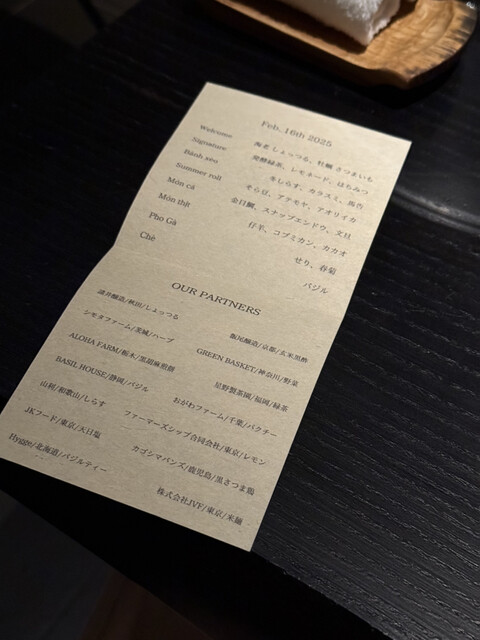 Feb, 16th 2025
Welcome 海老 しょっつる、牡蠣 さつまいも
Signature 発酵緑茶、レモネード、はちみつ
Bánh xèo 生しらす、カラスミ、馬告
Summer roll そら豆、アテモヤ、アオリイカ
Món cá 金目鯛、スナップエンドウ、文旦
Món thịt 仔羊、コブミカン、カカオ
Pho Gà せり、春菊
Chè バジル
OUR PARTNERS
諸井醸造/秋田/しょっつる 飯尾醸造/京都/玄米黒酢
シモタファーム/茨城/ハーブ GREEN BASKET/神奈川/野菜
ALOHA FARM/栃木/黒胡麻煎餅 星野製茶園/福岡/緑茶
BASIL HOUSE/静岡/バジル おがわファーム/千葉/パクチー
山利/和歌山/しらす ファーマーズシップ合同会社/東京/レモン
JKフード/東京/天日塩 カゴシマバンズ/鹿児島/黒さつま鶏
Hygge/北海道/バジルティー 株式会社JVF/東京/米麺